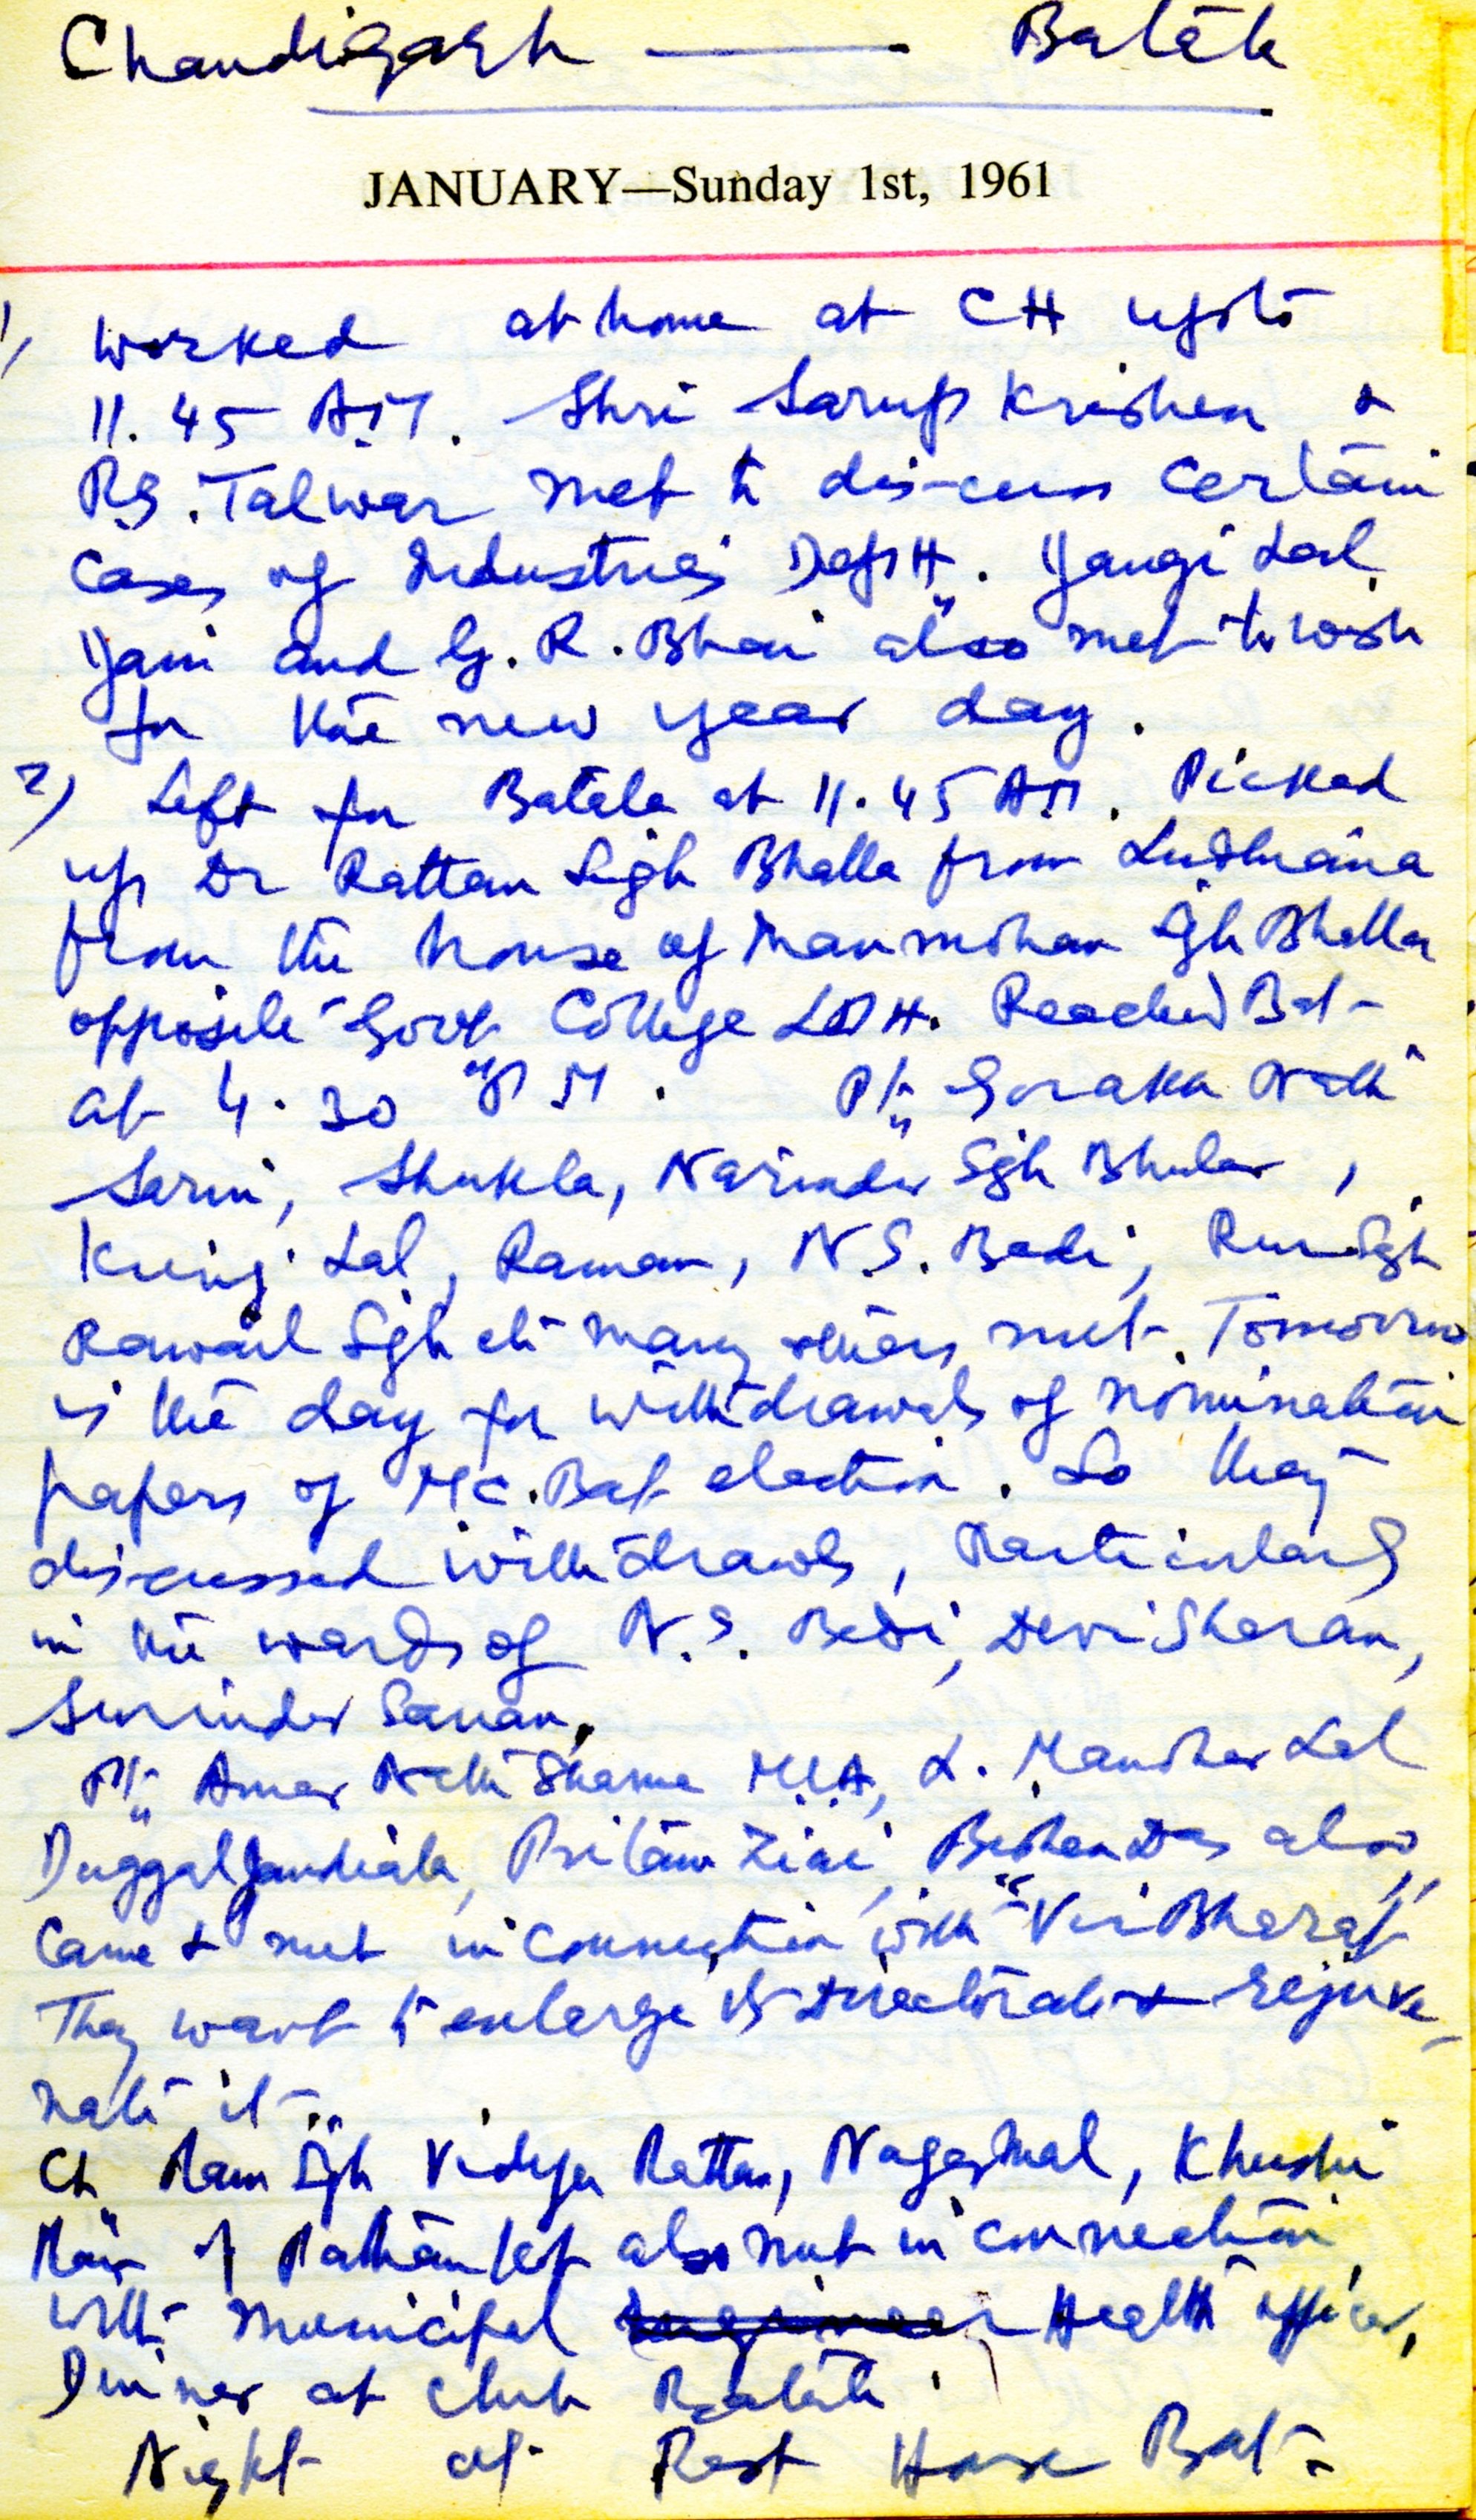 Chandigarh — Batala
JANUARY—Sunday 1st, 1961
1) Worked at home at CH upto
11.45 A.M. Shri Sarup Krishen &
R.S. Talwar met to dis-cuss certain
cases of Industries Deptt. Yangi Lal
and G. R. Bhai also met to wish
for the new year day.
2) Left for Batala at 11.45 A.M. Picked
up Dr Rattan Sigh Bhalla from Ludhiana
from the house of Manmohan Sgh Bhalla
opposite Govt College LDH. Reached Bat-
at 4.30 P.M. Pt. Gorakh Nath
Sarin, Shukla, Narinder Sgh Bhular,
Kunj Lal, Raman, N.S. Bedi, Sgh
Rawail Sgh etc many others met. Tomorrow
is the day for withdrawals of nomination
papers of M.C. Bat election. So they
discussed withdrawls, Particularly
in the wards of N.S. Bedi, Devi Sharan,
Surinder Sanan.
Pt. Amar Nath Sharma M.L.A, L. Manohar Lal
Duggal Jandiala, Pritam Ziai, Bishen Das also
came & met in connection with "Vir Bharat"
They want to enlarge its Directorate & rejuve-
nate it.
Ch Ram Sgh Vidya Rattan, Nagar Mal, Khushi
Ram of Pathankot also met in connection
with municipal Health officer,
Dinner at club Batala.
Night at Rest House Bat-